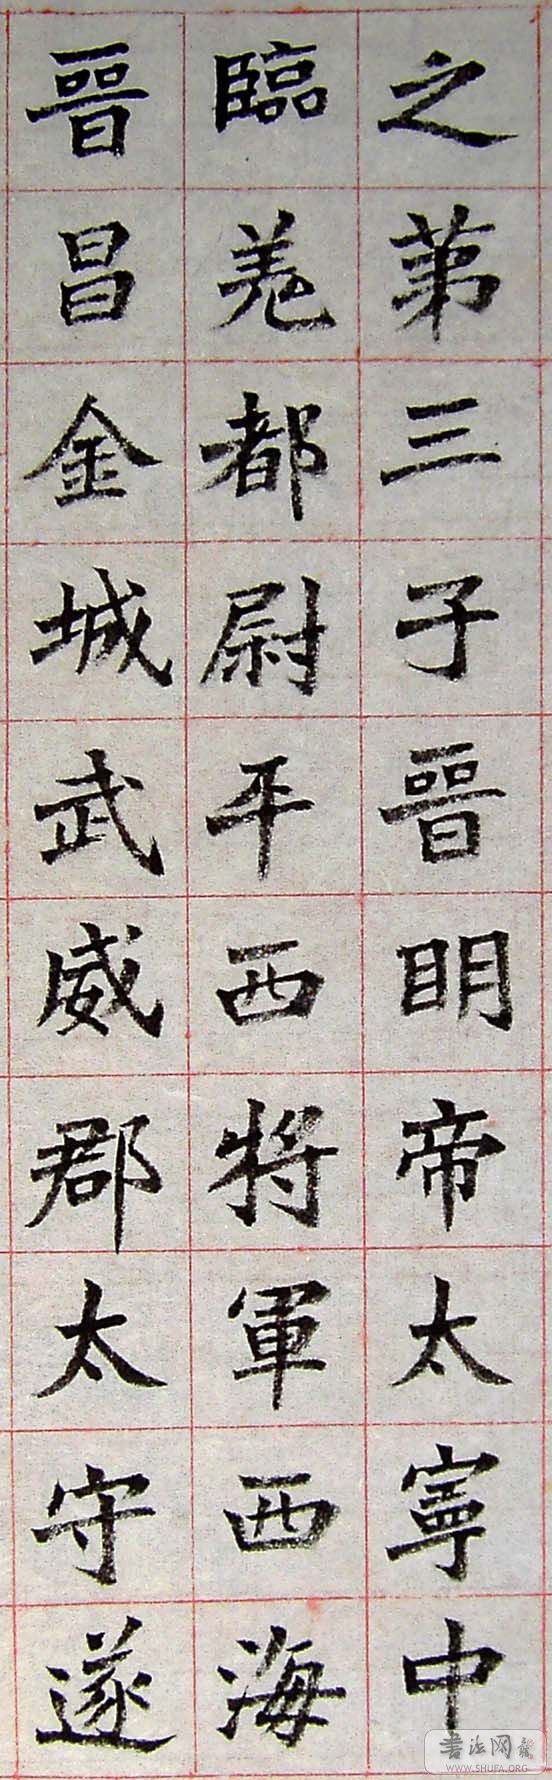 之第三子晉明帝太寧中
臨羌都尉平西將軍西海
晉昌金城武威郡太守遂
書法网
WWW.SHUFA.ORG